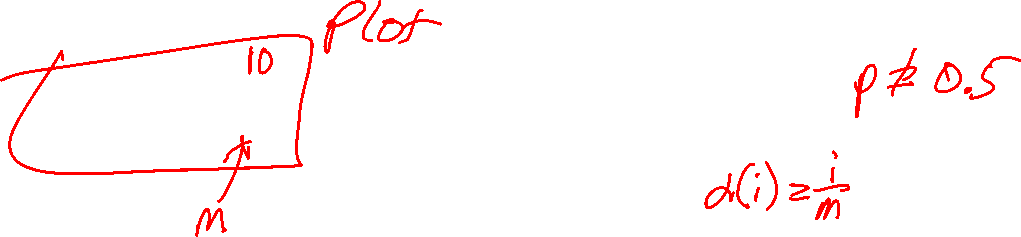 Plot
10
p ≠ 0.5
d(i) = i/m
m